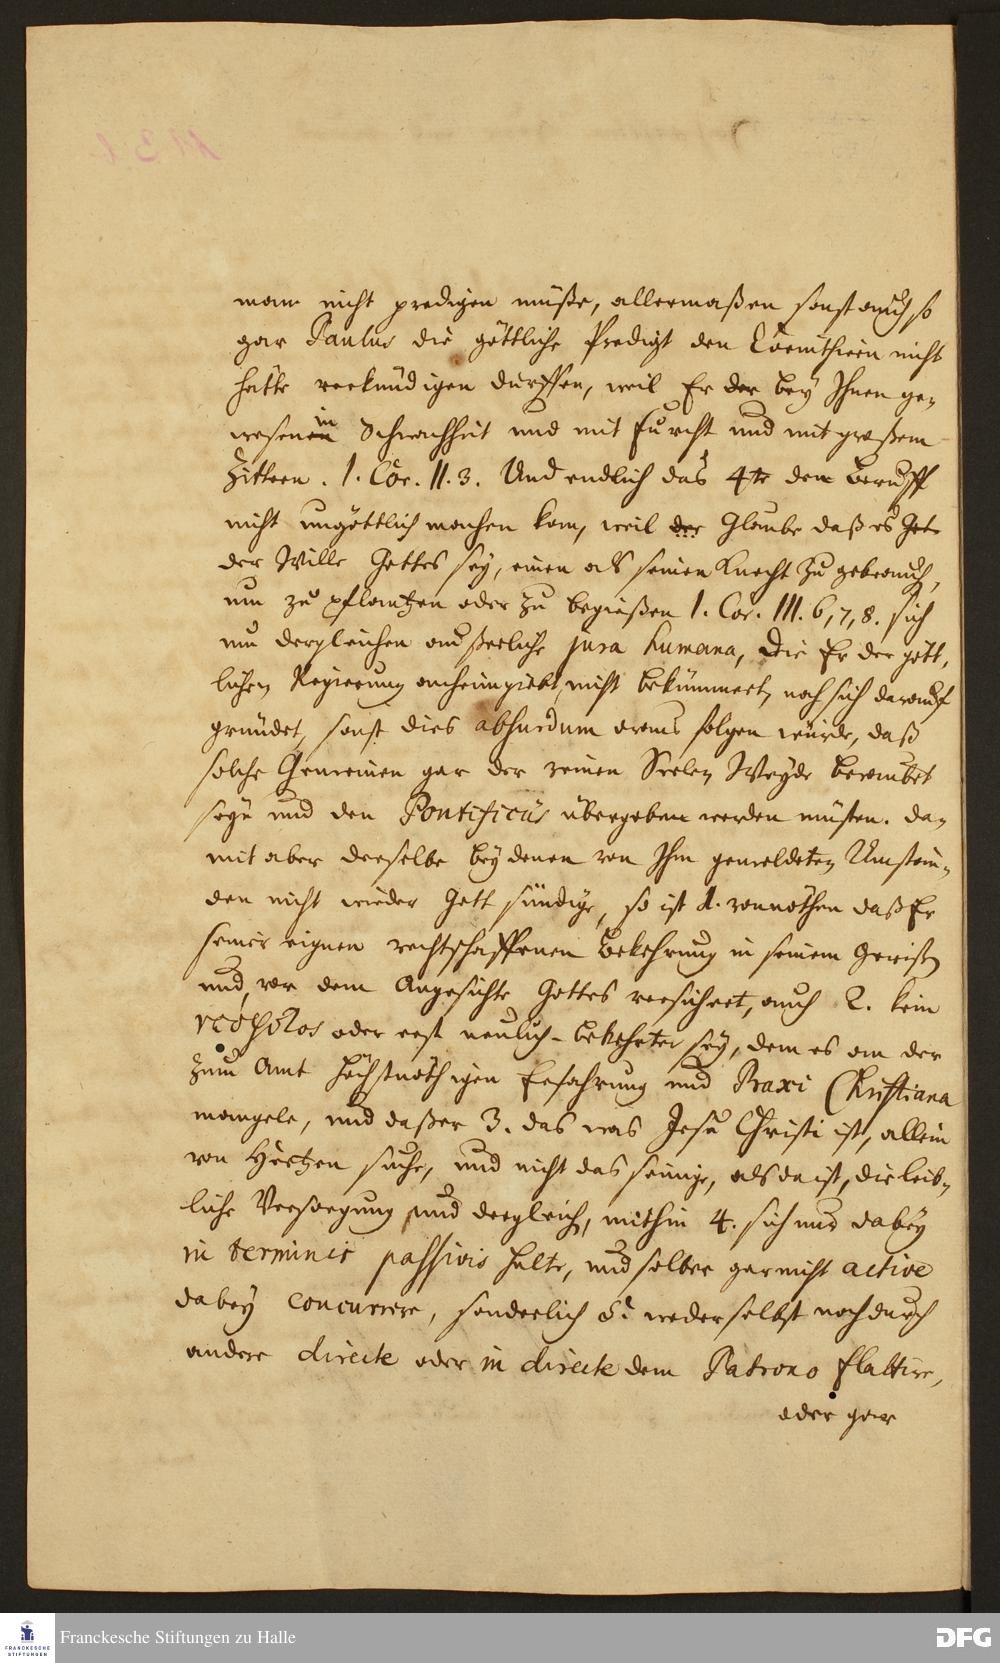 man nicht predigen müße, allermaßen sonst auch so
gar Paulus die göttliche Predigt den Corinthiern nicht
hätte verkündigen dürffen, weil Er der bey Ihnen ge-
wesen in Schwachheit und mit Furcht und mit großem
Zittern. 1. Cor. II. 3. Und endlich das 4te den Beruff
nicht ungöttlich machen kan, weil der Glaube daß es Gott
der Wille Gottes sey, einen als seinen Knecht zu gebrauch,
um zu pflantzen oder zu begießen 1. Cor. III. 6, 7, 8. sich
um dergleichen äußerliche jura humana, die Er der gött-
lichen Regierung anheimgiebt, nicht bekümmert, noch sich darauf
gründet, sonst dies absurdum draus folgen würde, daß
solche Gemeinen gar der reinen Seelen Weyde beraubet
seyn und den Pontificiis übergeben werden müsten. Da-
mit aber derselbe bey denen von Ihm gemeldeten Umstän-
den nicht wieder Gott sündige, so ist 1. vonnöthen daß Er
seiner eignen rechtschaffenen Bekehrung in seinem Gewißen
und vor dem Angesichte Gottes versichert, auch 2. kein
νεόφυτος oder erst neulich-bekehrter sey, dem es an der
zum Amt höchstnöthigen Erfahrung und Praxi Christiana
mangele, und daß er 3. das was Jesu Christi ist, allein
von Hertzen suche, und nicht das seinige, als da ist, die leib-
liche Versorgung und dergleich, mithin 4. sich nur dabey
in terminis passivis halte, und selber gar nicht active
dabey concurrire, sonderlich 5. weder selbst noch durch
andere directe oder in directe dem Patrono flattire,
oder gar
Franckesche Stiftungen zu Halle
FRANCKESCHE
STIFTUNGEN
DFG